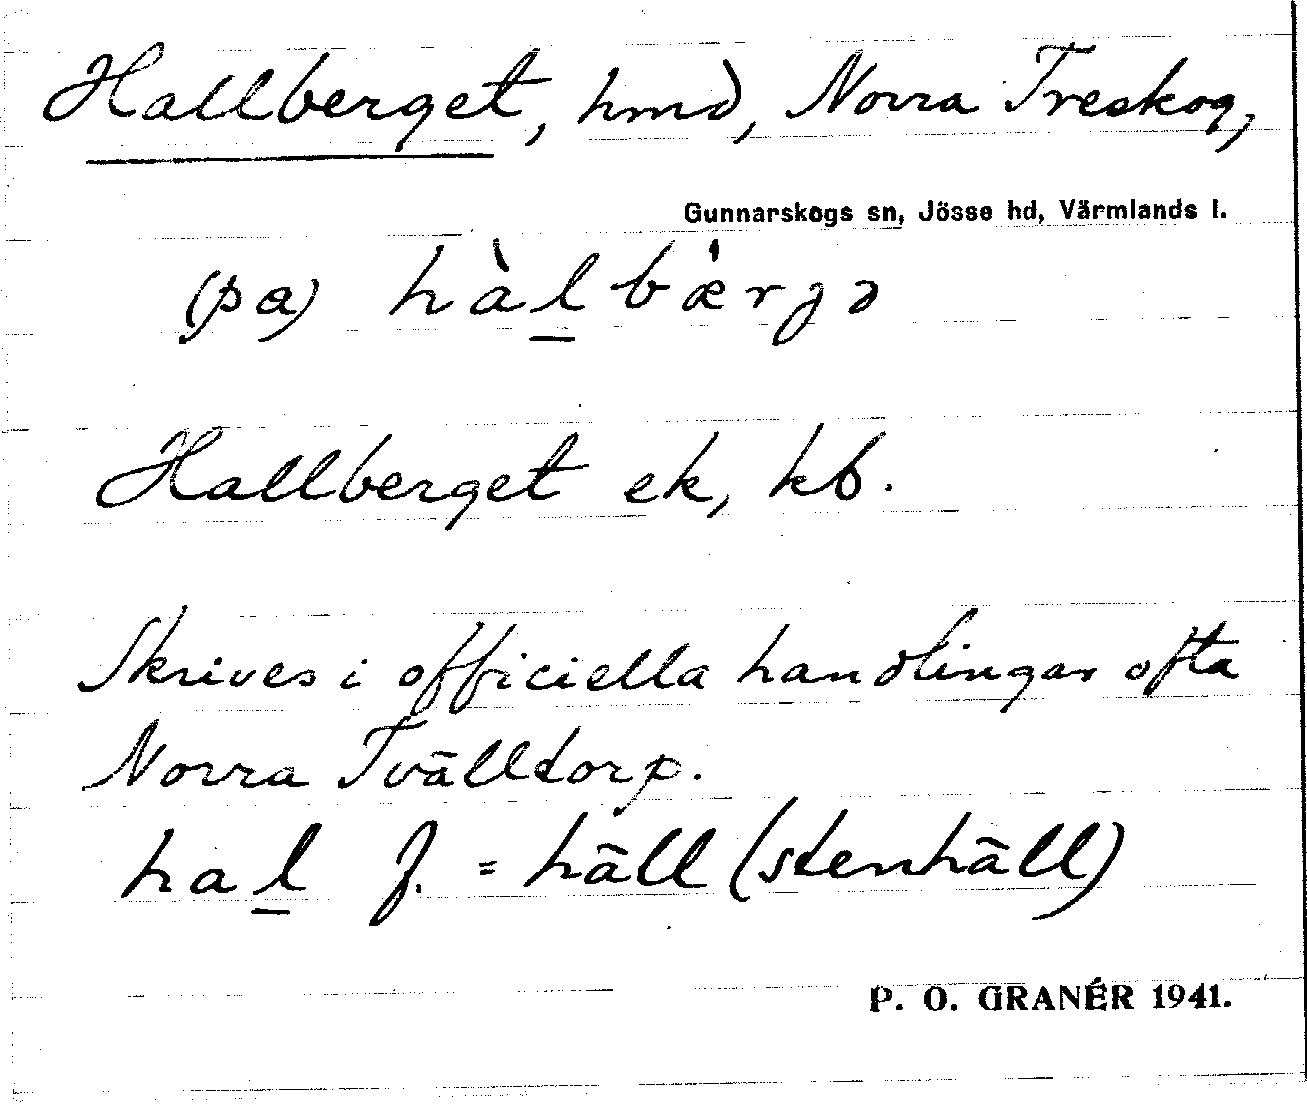 Hallberget, hmd, Norra Treskog,
Gunnarskogs sn, Jösse hd, Värmlands l.
(pa) hàl̲bæ̍rjə
Hallberget ek, kb.
Skrives i officiella handlingar ofta
Norra Tvälltorp.
hal̲ f. = häll (stenhäll)
P. O. GRANÉR 1941.